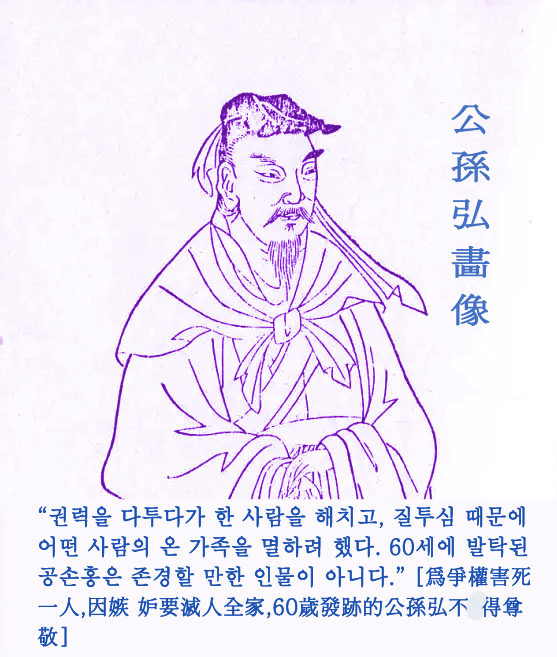 公孫弘畵像
“권력을 다투다가 한 사람을 해치고, 질투심 때문에
어떤 사람의 온 가족을 멸하려 했다. 60세에 발탁된
공손홍은 존경할 만한 인물이 아니다.” [爲爭權害死
一人,因嫉 妒要滅人全家,60歲發跡的公孫弘不 得尊
敬]